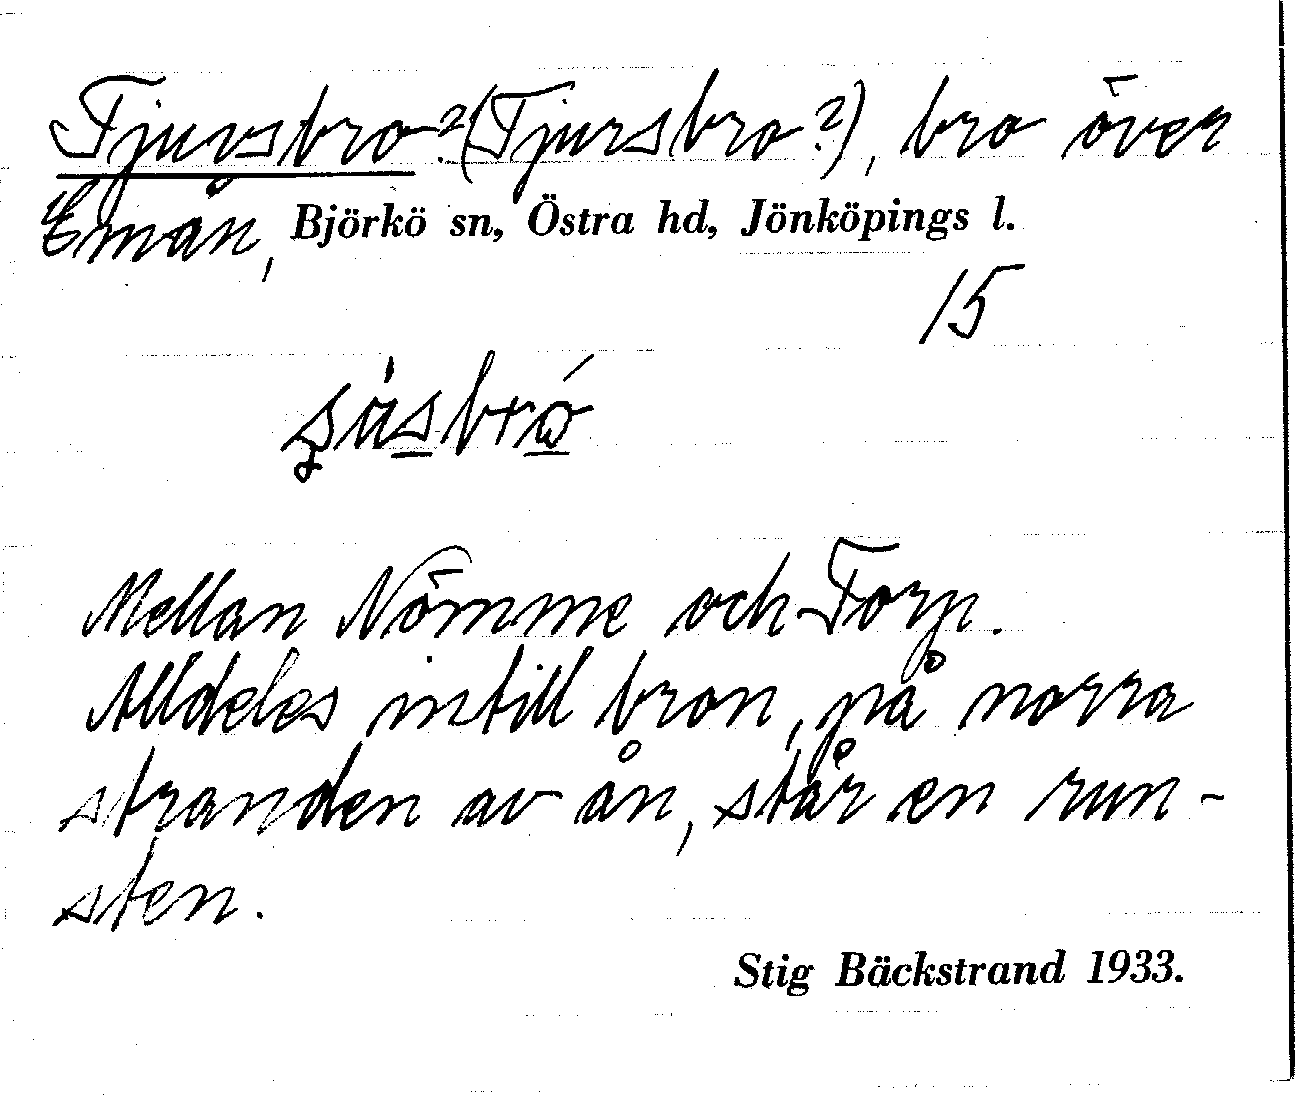 Tjuvsbro? (Tjursbro?), bro över
Emån, Björkö sn, Östra hd, Jönköpings l.
15
Mellan Nömme och Torp.
Alldeles intill bron, på norra
stranden av ån, står en run-
sten.
Stig Bäckstrand 1933.